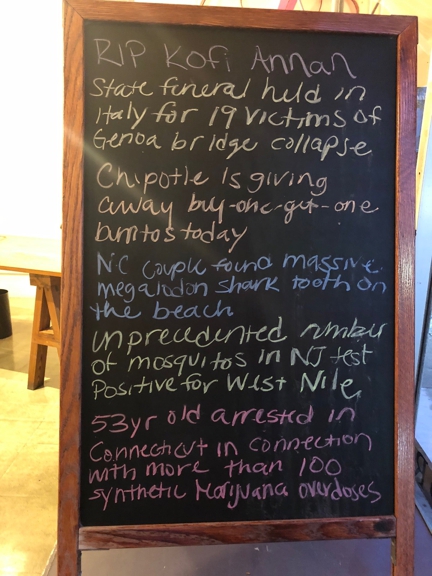 RIP Kofi Annan
State funeral held in
Italy for 19 victims of
Genoa bridge collapse
Chipotle is giving
away buy-one-get-one
burritos today
NC couple found massive
megalodon shark tooth on
the beach
unprecedented number
of mosquitos in NJ test
Positive for West Nile
53yr old arrested in
Connecticut in connection
with more than 100
synthetic Marijuana overdoses